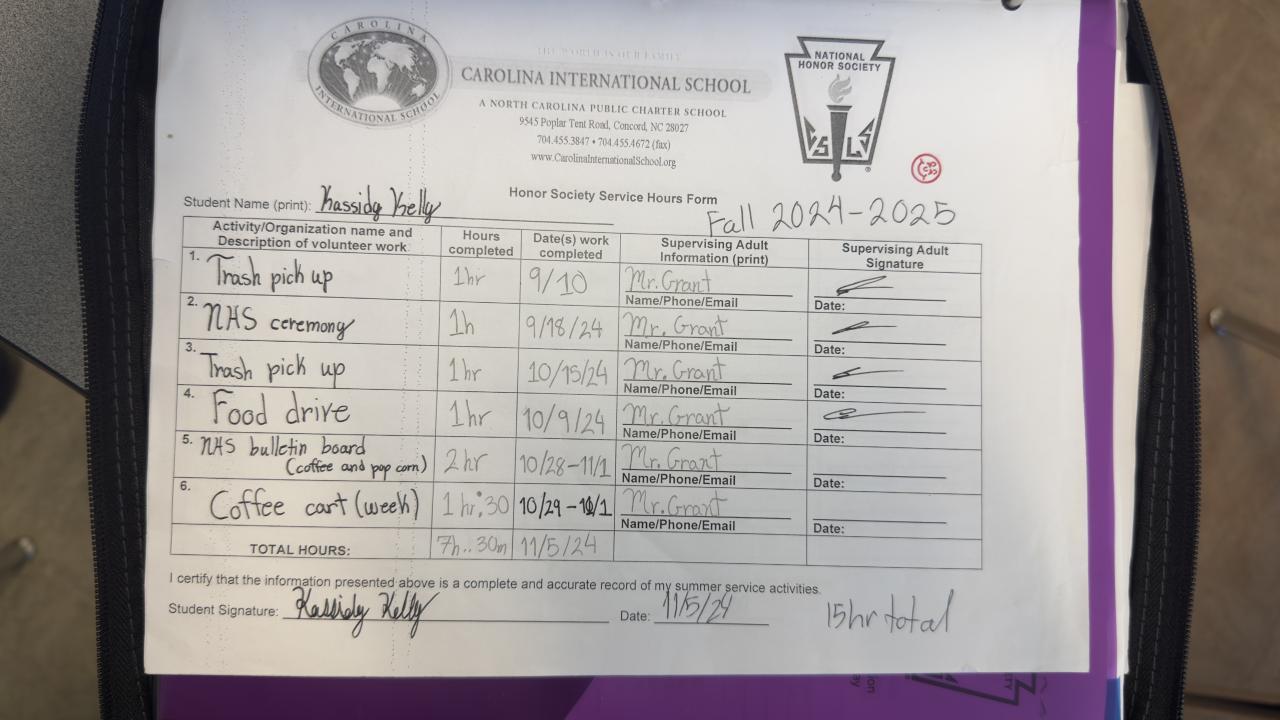 CAROLINA
INTERNATIONAL SCHOOL
THE WORLD IS OUR FAMILY
CAROLINA INTERNATIONAL SCHOOL
A NORTH CAROLINA PUBLIC CHARTER SCHOOL
9545 Poplar Tent Road, Concord, NC 28027
704.455.3847 • 704.455.4672 (fax)
www.CarolinaInternationalSchool.org
NATIONAL
HONOR SOCIETY
CSLS
®
Honor Society Service Hours Form
Student Name (print): Kassidy Kelly
Fall 2024-2025
Activity/Organization name and Description of volunteer work Hours completed Date(s) work completed Supervising Adult Information (print) Supervising Adult Signature
1. Trash pick up 1hr 9/10 Mr. Grant
Name/Phone/Email Date:
2. NHS ceremony 1h 9/18/24 Mr. Grant
Name/Phone/Email Date:
3. Trash pick up 1hr 10/15/24 Mr. Grant
Name/Phone/Email Date:
4. Food drive 1hr 10/9/24 Mr. Grant
Name/Phone/Email Date:
5. NHS bulletin board
(coffee and pop corn) 2hr 10/28-11/1 Mr. Grant
Name/Phone/Email Date:
6. Coffee cart (week) 1 hr:30 10/29-11/1 Mr. Grant
Name/Phone/Email Date:
TOTAL HOURS: 7h..30m 11/5/24
I certify that the information presented above is a complete and accurate record of my summer service activities.
Student Signature: Kassidy Kelly Date: 11/5/24
15hr total